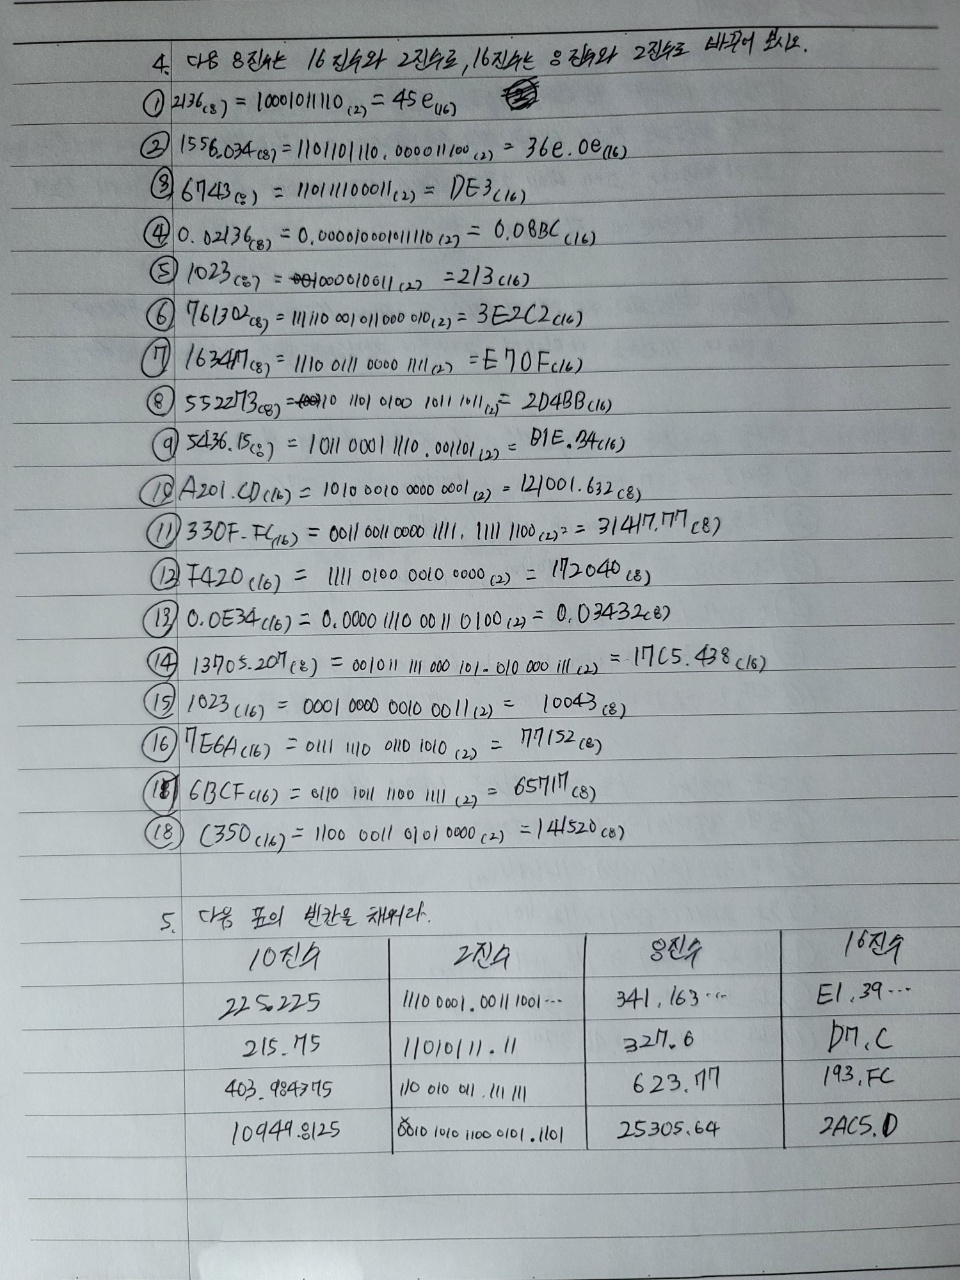 4. 다음 8진수는 16진수와 2진수로, 16진수는 8진수와 2진수로 바꾸어 보시오.
① 2136(8) = 10001011110(2) = 45e(16)
② 1556.034(8) = 1101101110.000011100(2) = 36e.0e(16)
③ 6743(8) = 110111100011(2) = DE3(16)
④ 0.02136(8) = 0.000010001011110(2) = 0.08BC(16)
⑤ 1023(8) = 1000010011(2) = 213(16)
⑥ 761302(8) = 111110 001011000 010(2) = 3E2C2(16)
⑦ 163417(8) = 1110 0111 0000 1111(2) = E70F(16)
⑧ 552273(8) = 10 1101 0100 1011 1011(2) = 2D4BB(16)
⑨ 5436.15(8) = 1011 0001 1110.001101(2) = B1E.34(16)
⑩ A201.CD(16) = 1010 0010 0000 0001(2) = 121001.632(8)
⑪ 330F.FC(16) = 0011 0011 0000 1111. 1111 1100(2) = 31417.77(8)
⑫ F420(16) = 1111 0100 0010 0000(2) = 172040(8)
⑬ 0.0E34(16) = 0.0000 1110 0011 0100(2) = 0.03432(8)
⑭ 13705.207(8) = 001011 111 000 101.010 000 111(2) = 17C5.438(16)
⑮ 1023(16) = 0001 0000 0010 0011(2) = 10043(8)
⑯ 7E6A(16) = 0111 1110 0110 1010(2) = 77152(8)
6BCF(16) = 0110 1011 1100 1111(2) = 65717(8)
⑱ C350(16) = 1100 0011 0101 0000(2) = 141520(8)
5. 다음 표의 빈칸을 채워라.
10진수 2진수 8진수 16진수
225.225 1110 0001.0011 1001… 341.163… E1.39…
215.75 11010111.11 327.6 D7.C
403.984375 110 010 011.111 111 623.77 193.FC
10949.8125 0010 1010 1100 0101.1101 25305.64 2AC5.D